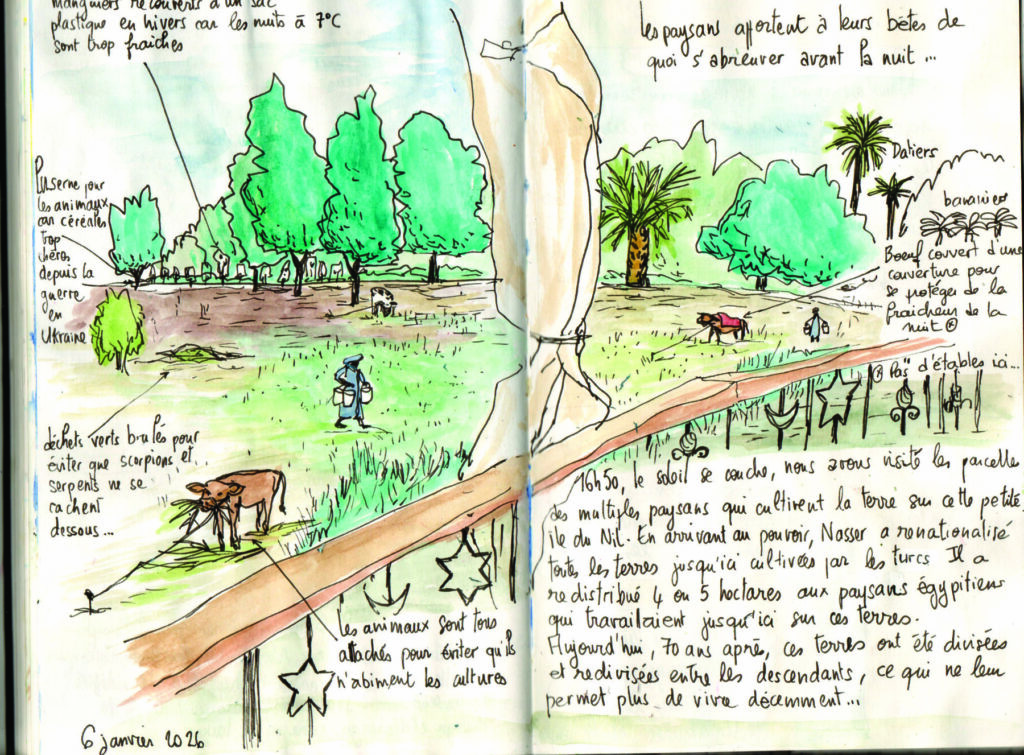 manguiers recouverts d'un sac
plastique en hivers car les nuits à 7°C
sont trop fraiches
Luserne pour
les animaux
car céréales
trop
chères
depuis la
guerre
en
Ukraine
déchets verts brulés pour
éviter que scorpions et
serpents ne se
cachent
dessous...
les animaux sont tous
attachés pour éviter qu'ils
n'abiment les cultures
6 janvier 2026
les paysans apportent à leurs bêtes de
quoi s'abreuver avant la nuit...
Datiers
bananiers
Boeuf couvert d'une
couverture pour
se protéger de la
fraicheur de la
nuit
Pas d'étables ici...
16h50, le soleil se couche, nous avons visité les parcelles
des multiples paysans qui cultivent la terre sur cette petite
île du Nil. En arrivant au pouvoir, Nasser a renationalisé
toutes les terres jusqu'ici cultivées par les turcs Il a
redistribué 4 ou 5 hectares aux paysans égyptiens
qui travaillaient jusqu'ici sur ces terres.
Aujourd'hui, 70 ans après, ces terres ont été divisées
et redivisées entre les descendants, ce qui ne leur
permet plus de vivre décemment...